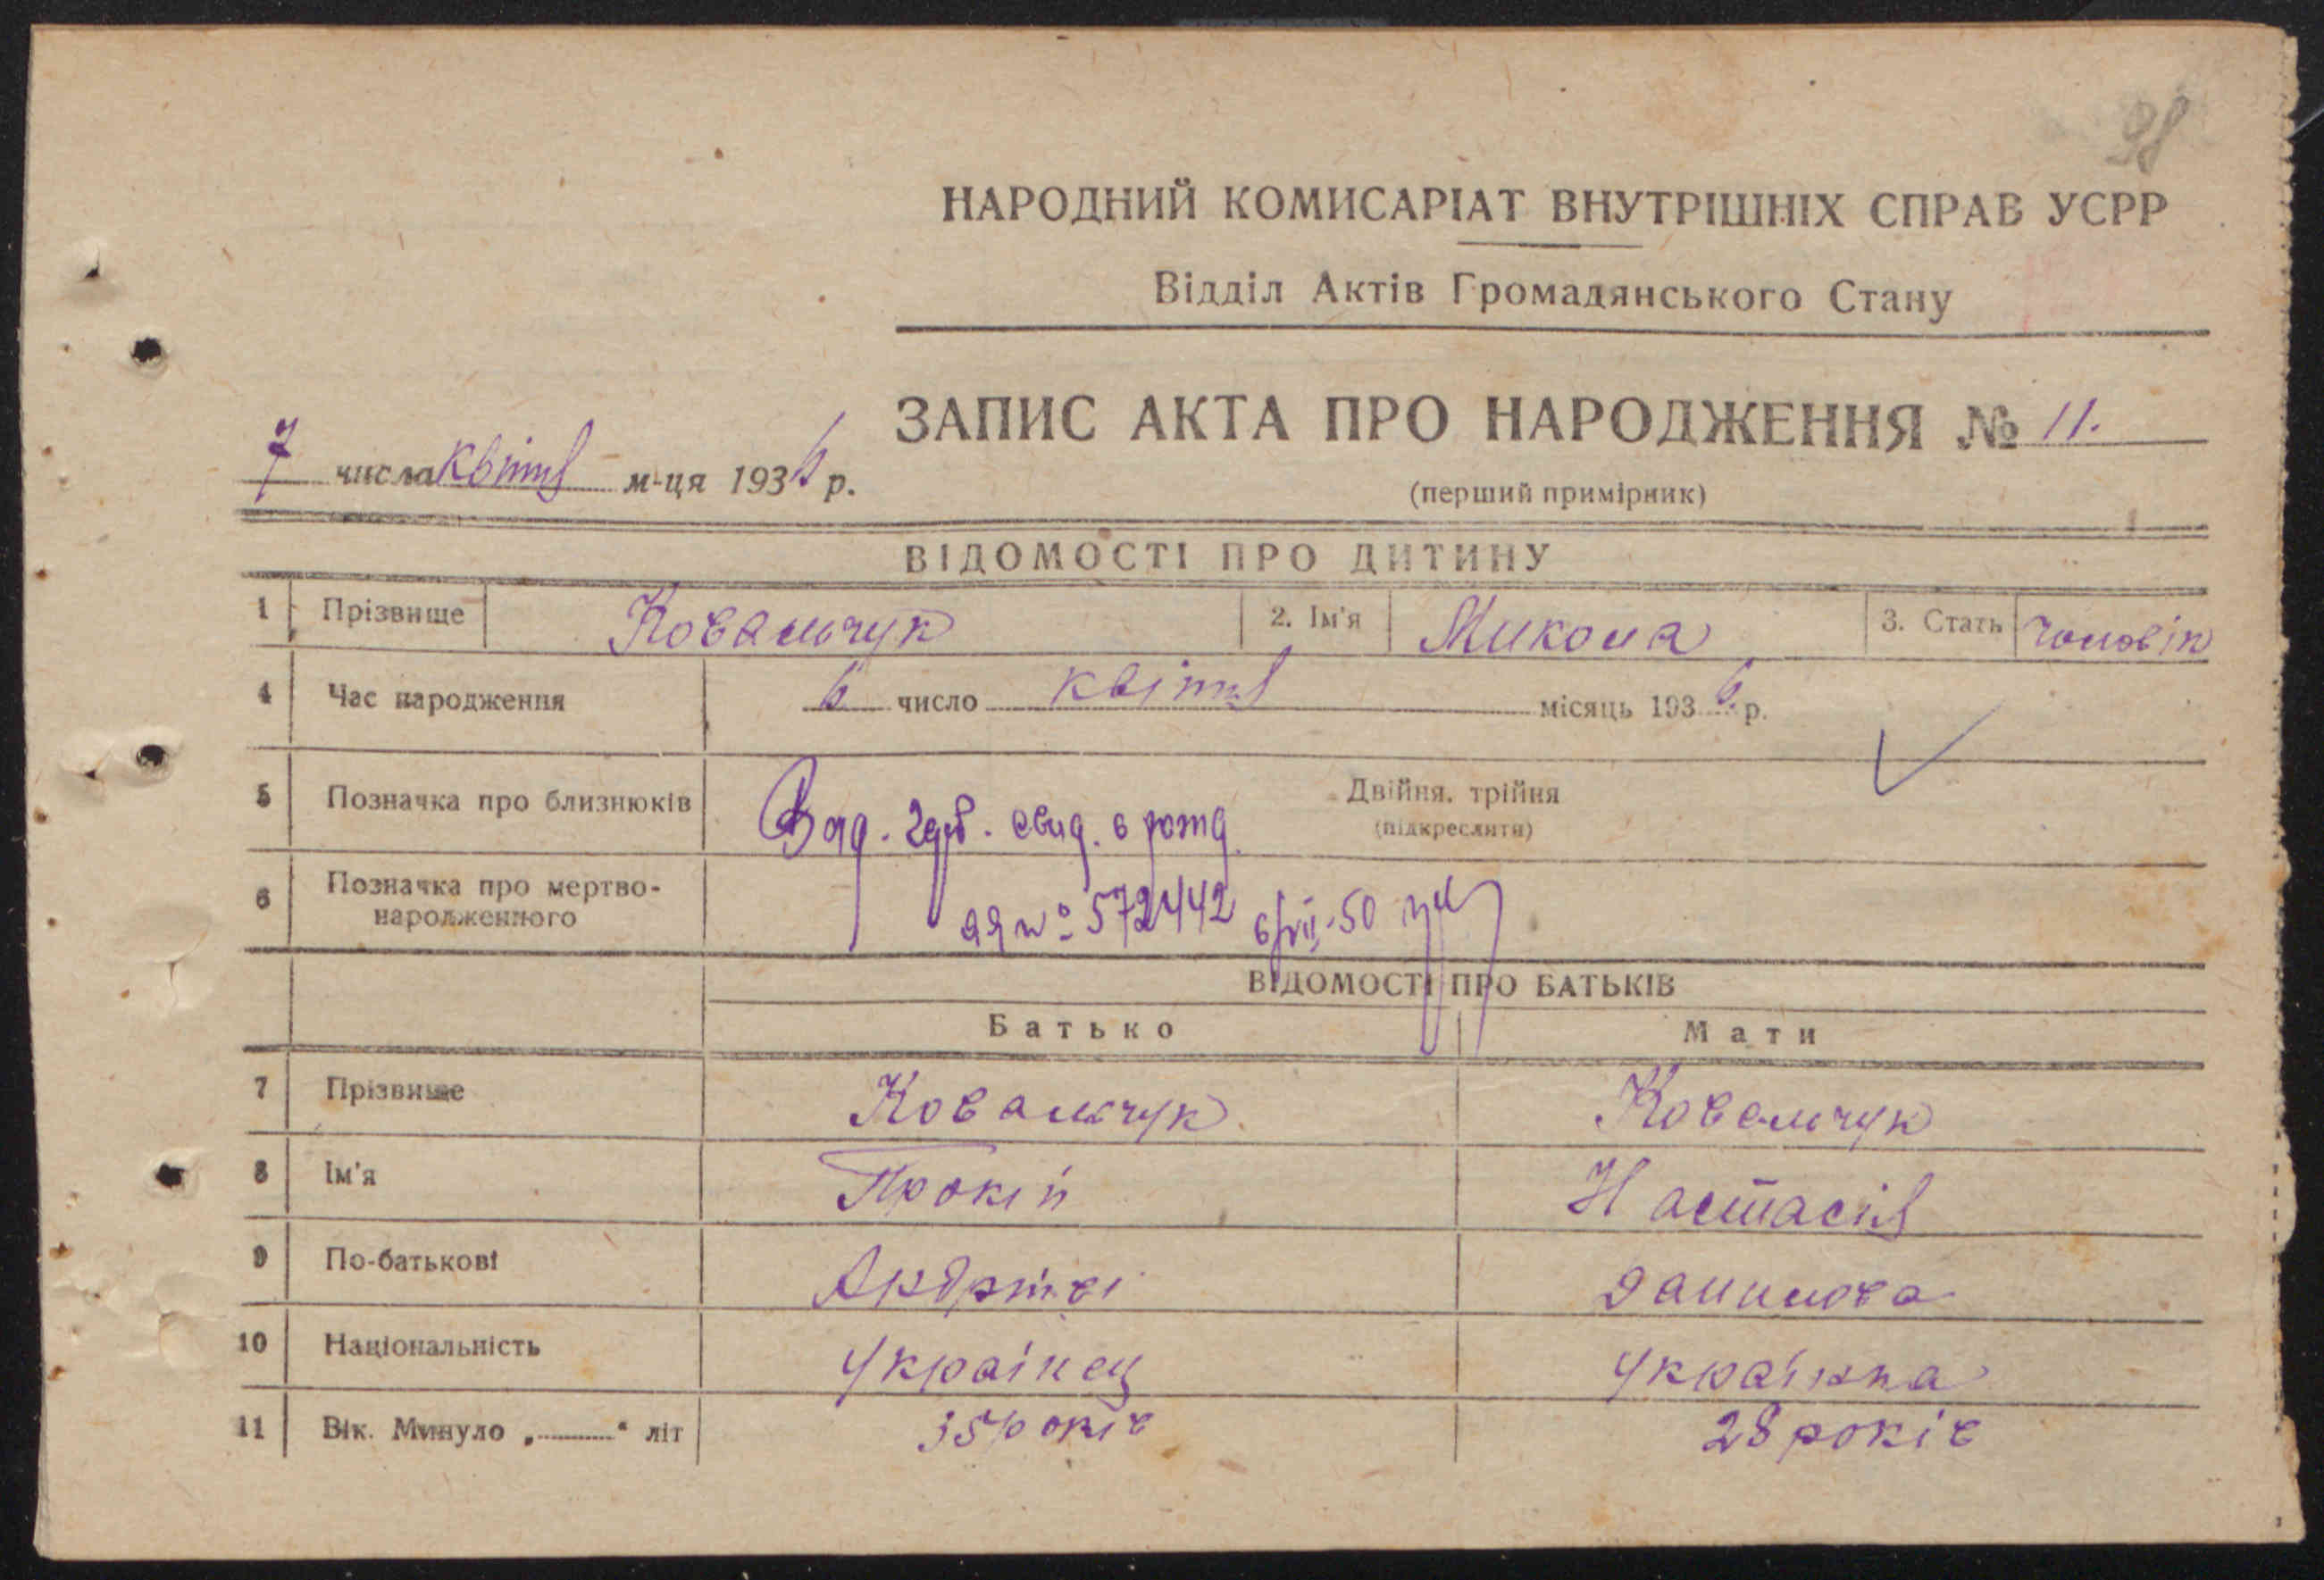 98
НАРОДНИЙ КОМИСАРІАТ ВНУТРІШНІХ СПРАВ УСРР
Відділ Актів Громадянського Стану
ЗАПИС АКТА ПРО НАРОДЖЕННЯ № 11.
7 числа квітня м-ця 1936 р.
(перший примірник)
ВІДОМОСТІ ПРО ДИТИНУ
1 Прізвище Ковальчук 2. Ім'я Микола 3. Стать чоловік
4 Час народження 6 число квітня місяць 1936 р.
5 Позначка про близнюків Двійня, трійня
(підкреслити)
свид. о рожд.
6 Позначка про мертво-
народженного
№ 572442 6/VII-50
ВІДОМОСТІ ПРО БАТЬКІВ
Батько Мати
7 Прізвище Ковальчук Ковальчук
8 Ім'я Прокіп Настасія
9 По-батькові Данилова
10 Національність Українец Українка
11 Вік. Минуло „ “ літ 35 років 28 років